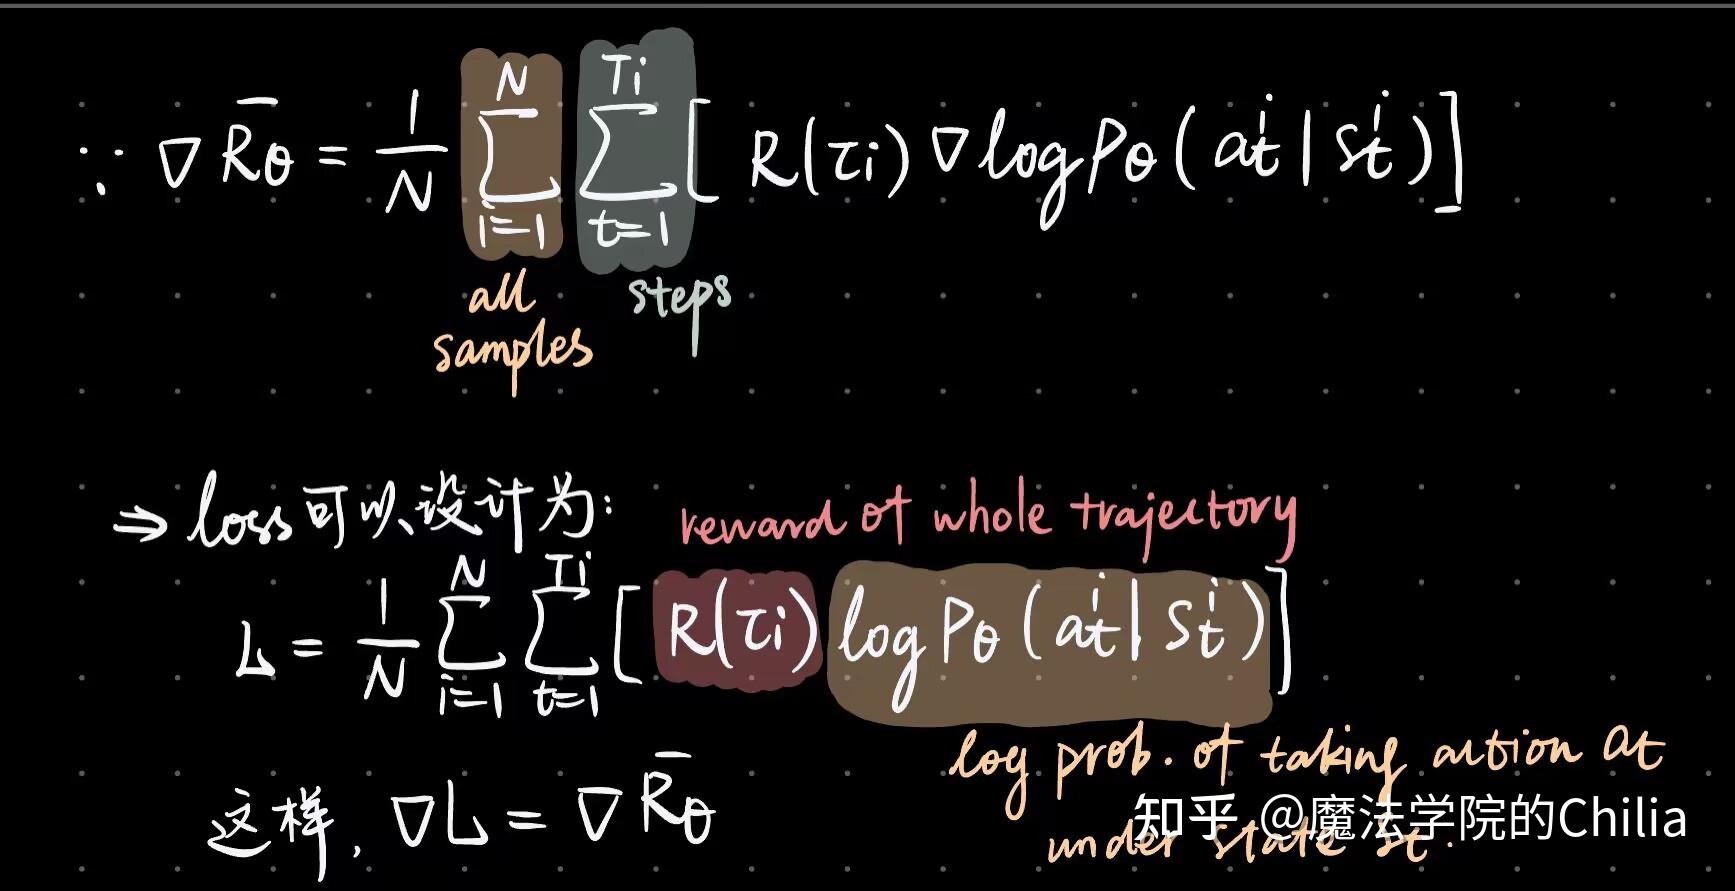 ∵ ∇R̄θ = 1/N ∑_{i=1}^{N} ∑_{t=1}^{Ti} [ R(τi) ∇ log Pθ ( a_t^i | s_t^i ) ]
all samples
steps
⇒ loss可以设计为:
reward of whole trajectory
L = 1/N ∑_{i=1}^{N} ∑_{t=1}^{Ti} [ R(τi) log Pθ ( a_t^i | s_t^i ) ]
log prob. of taking action at
under state st.
这样, ∇L = ∇R̄θ
知乎 @魔法学院的Chilia